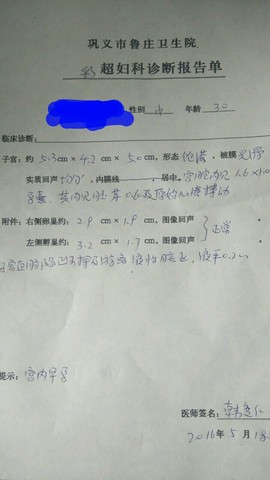 巩义市鲁庄卫生院
彩超妇科诊断报告单
性别 年龄 30
临床诊断:
子宫: 约 5.3cm × 4.2 cm × 5.0 cm, 形态 饱满, 被膜 光滑
实质回声 均匀, 内膜线 , 居中。宫腔内见 1.6×1.0
孕囊, 其内见胚芽 0.6 及原始心管搏动
附件: 右侧卵巢约: 2.9 cm × 1.9 cm, 图像回声
正常
左侧孵巢约: 3.2 cm × 1.7 cm, 图像回声 。
液性暗区, 液平0.2cm
提示: 宫内早孕
医师签名:
2016年5月